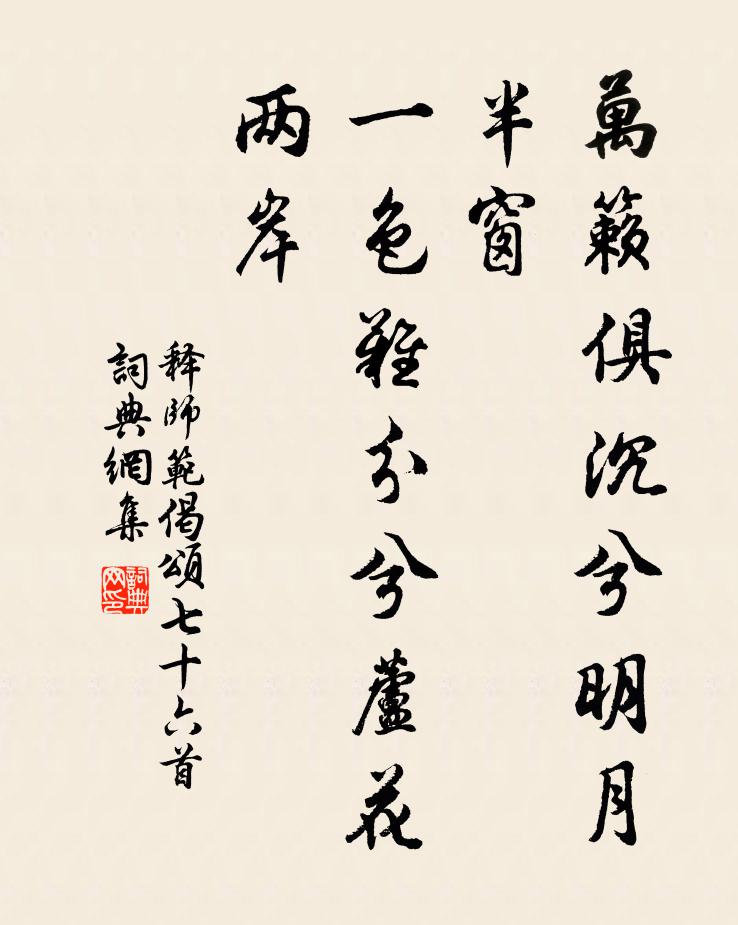 萬籟俱沉兮明月
半窗
一色難分兮蘆花
两岸
释師範偈頌七十六首
詞典網集
詞典网印